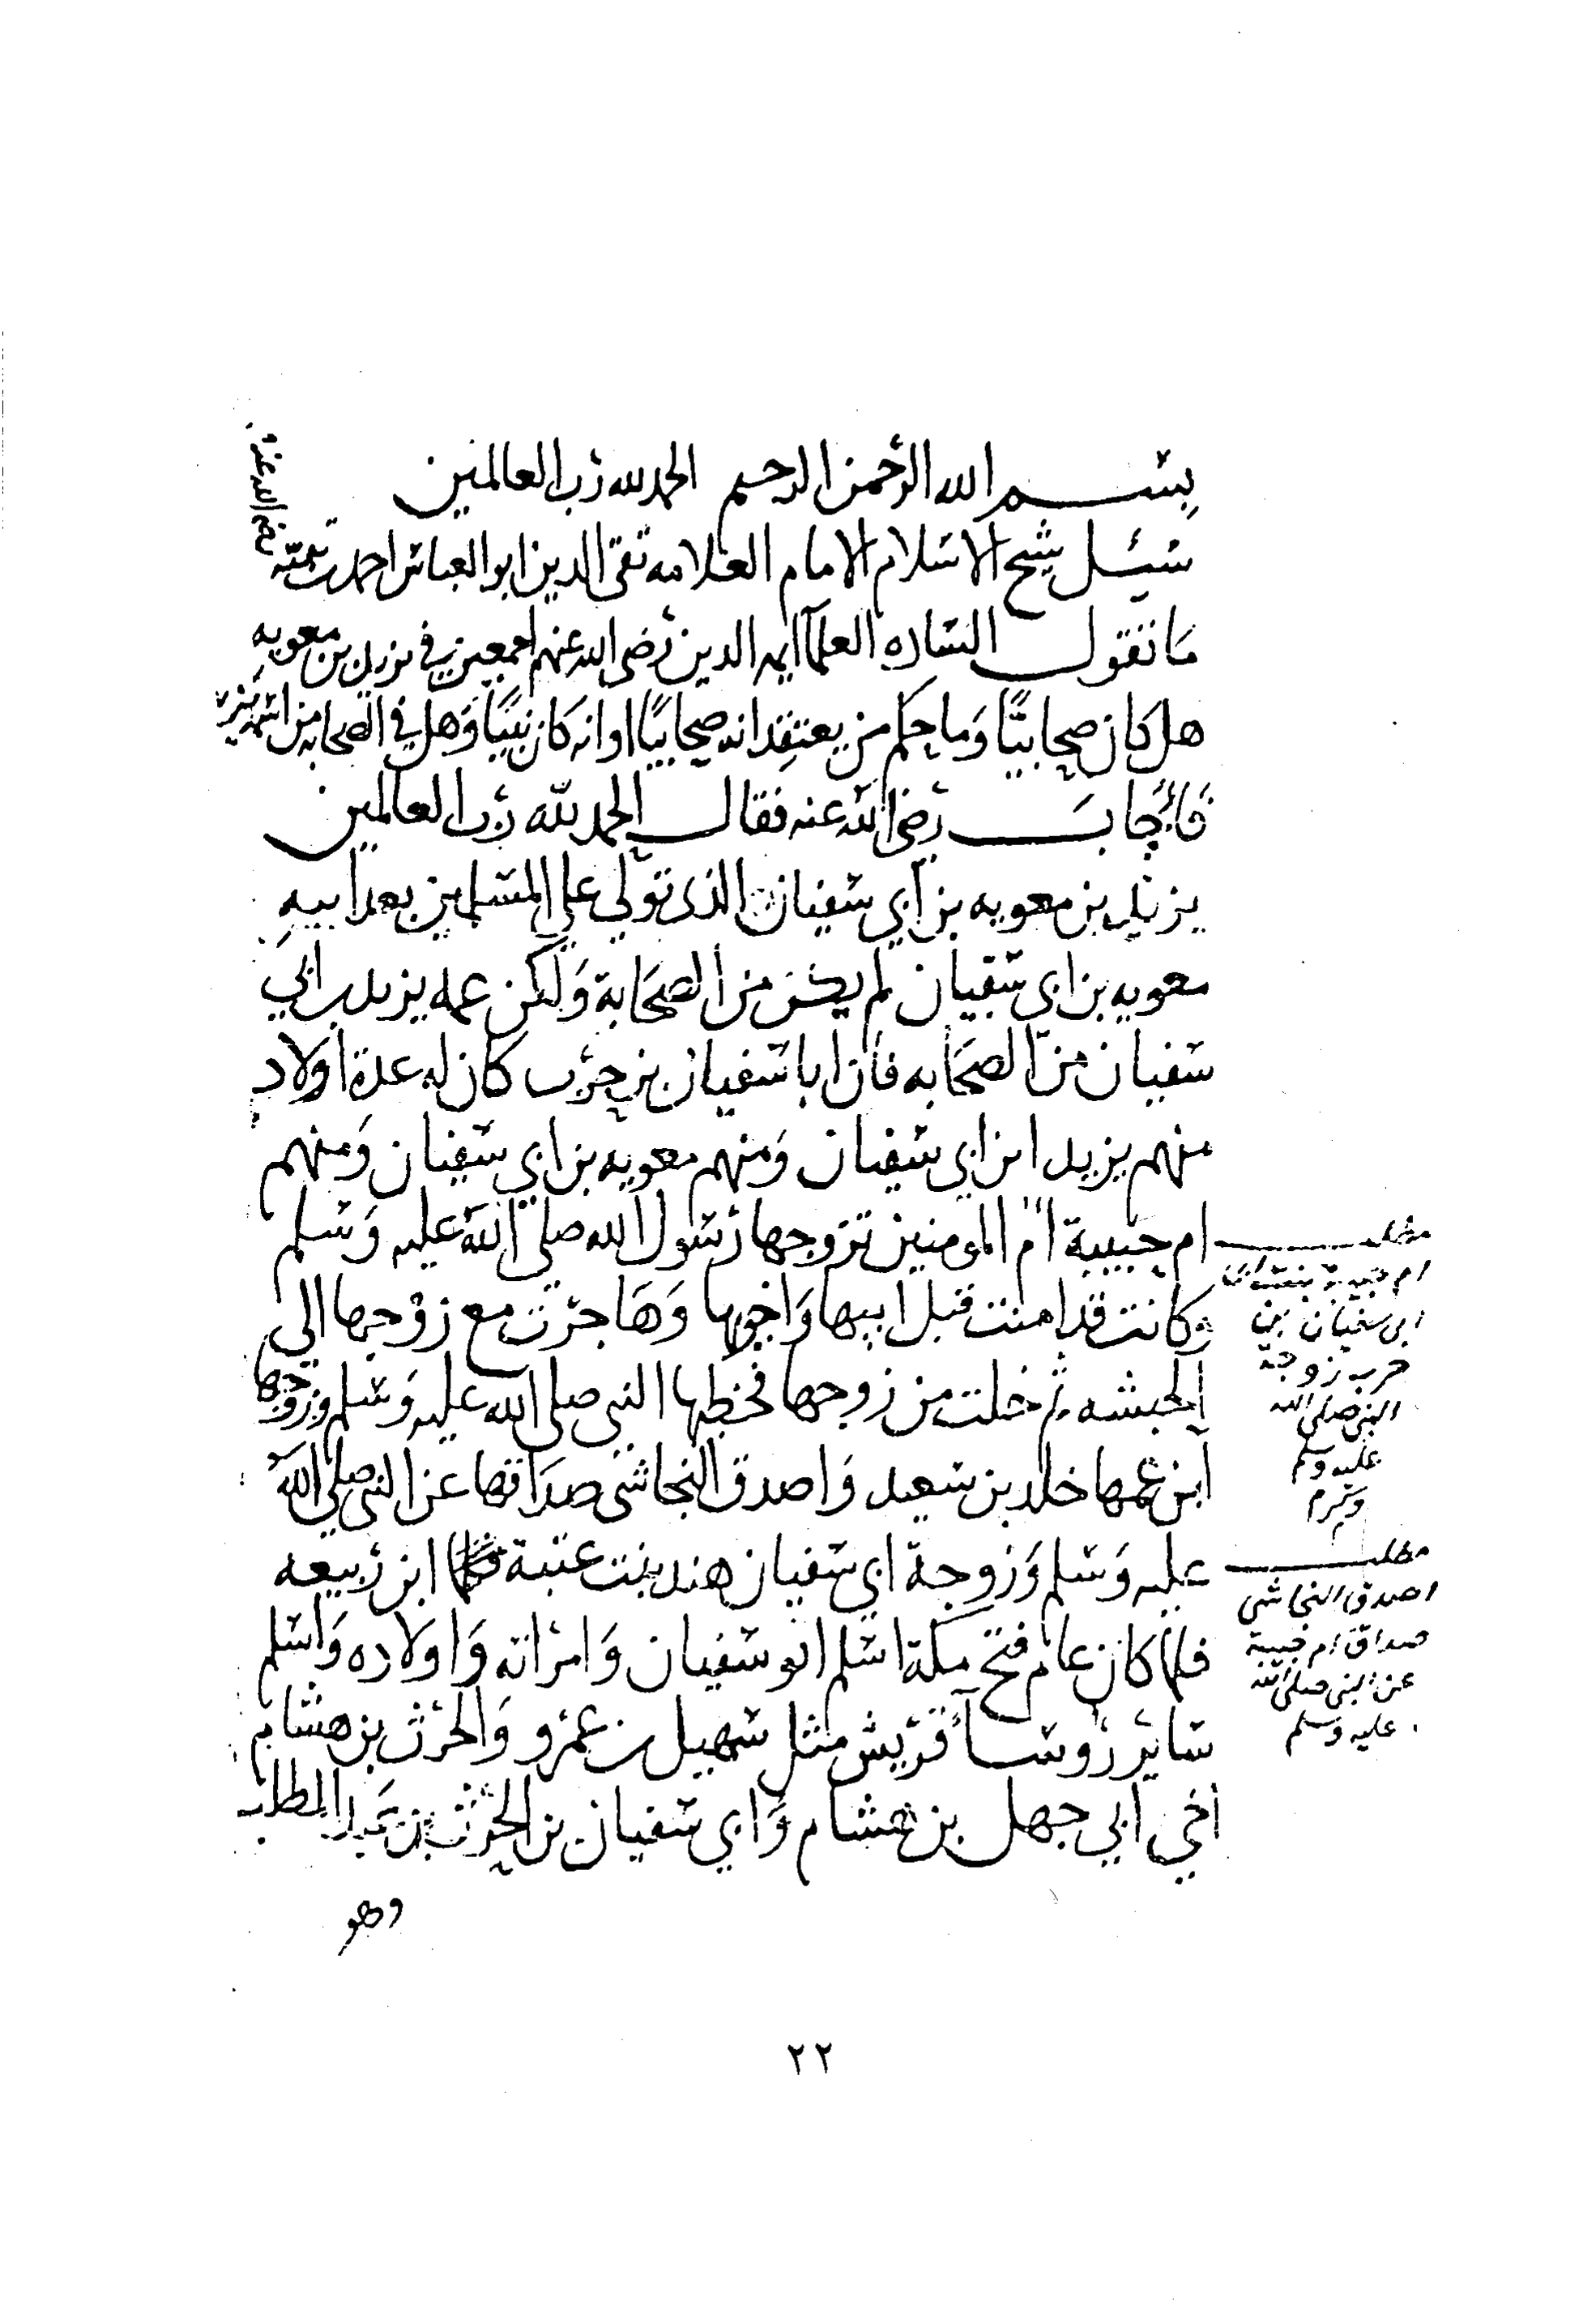 بسم الله الرحمن الرحيم الحمد لله رب العالمين
سئل شيخ الاسلام الامام العلامه تقي الدين ابو العباس احمد بن تيميه
رضي الله عنه
ما تقول الساده العلمآ ايمه الدين رضي الله عنهم اجمعين في يزيد بن معويه
هل كان صحابيًّا وَما حكم من يعتقد انه صحابيًا او انه كان نبيًا وَهل في الصحابه من اسمه يزيد
فأجَابَ رضي الله عنه فقال الحمد لله رب العالمين
يزيد بن معويه بن أبي سفيان الذي تولي علي المسلمين بعد ابيه
معويه بن ابي سفيان لم يكن من الصحَابة وَلكن عمه يزيد بن ابي
سفيان من الصحَابه فان ابا سفيان بن حرب كان له عدة اولاد
منهم يزيد ابن ابي سفيان وَمنهم معويه بن ابي سفيان وَمنهم
ام حبيبة ام المومنين تزوجها رسول الله صلي الله عليه وَسلم
وكانت قد امنت قبل ابيها وَاخويها وَهَاجرت مع زوجها الي
الحبشه ثم خلت من زوجها فخطبها النبي صلي الله عليه وَسلم وزوجها
ابن عمها خالد بن سعيد وَاصدق النجاشي صدَاقها عن النبي صلي الله
عليه وَسلم وَزوجة ابي سفيان هند بنت عتبة ابن ربيعه
فلما كان عام فتح مكة اسلم ابو سفيان وَامراته وَاولاده وَاسلم
سائر رؤسآ قريش مثل سهيل بن عمرو وَالحرث بن هشام
اخي ابي جهل بن هشام وَابي سفيان بن الحرث بن عبد المطلب
وهو
مطلب
ام حبيبة بنت
ابي سفيان بن
حرب زوجة
النبي صلى الله
عليه وسلم
وكرم
مطلب
اصدق النجاشي
صداق ام حبيبة
عن النبي صلى الله
عليه وسلم
٢٢